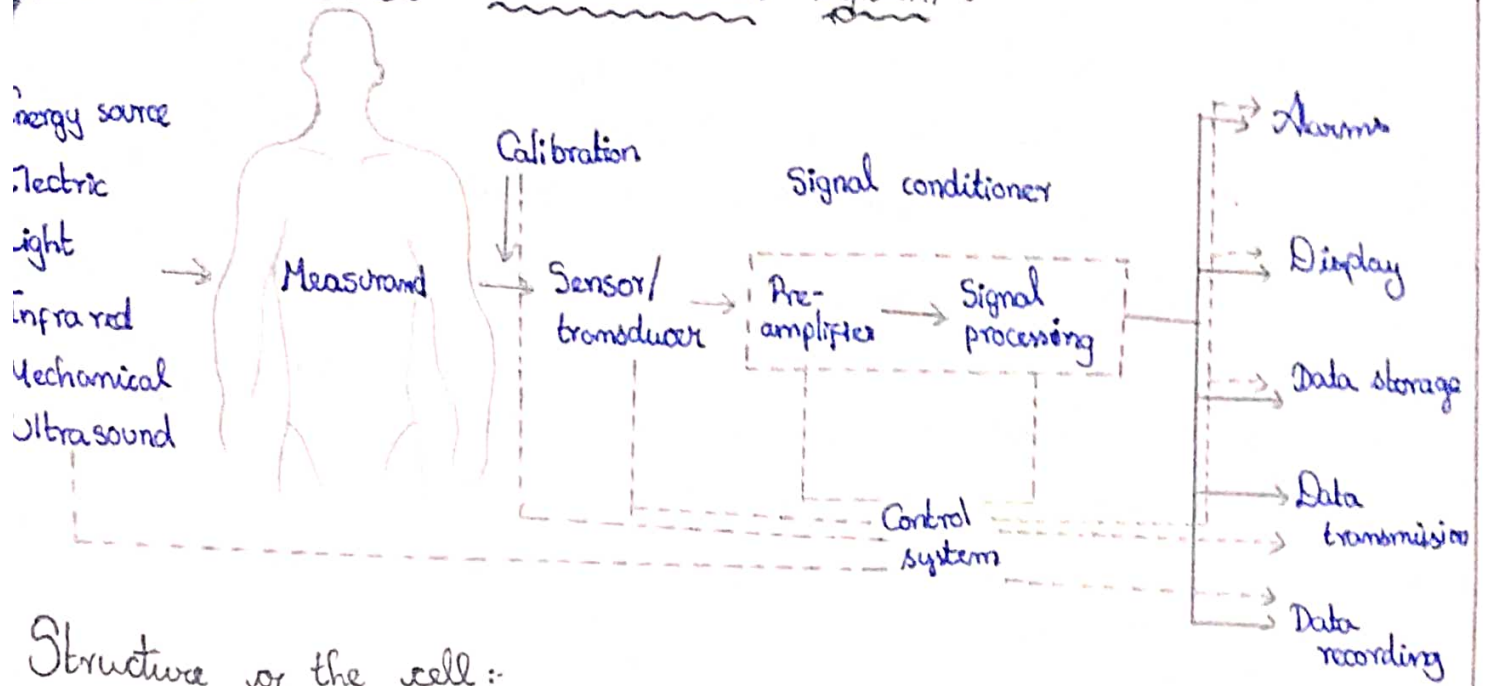 nergy source
lectric
ight
Infrared
Mechanical
Ultrasound
Measurand
Calibration
Sensor/
transducer
Signal conditioner
Pre-
amplifier
Signal
processing
Control
system
Alarms
Display
Data storage
Data
transmission
Data
recording
Structure or the cell:-